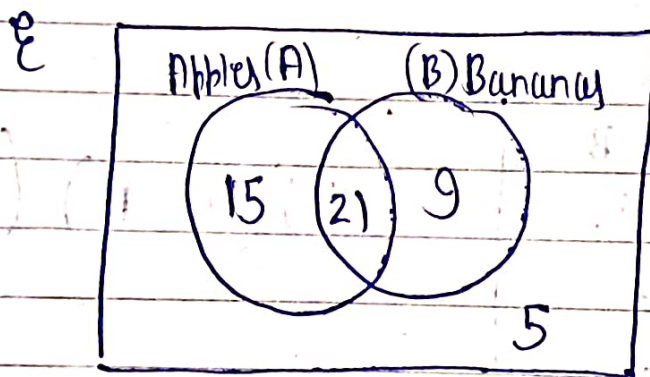 ξ
Apples (A) (B) Bananas
15 21 9
5